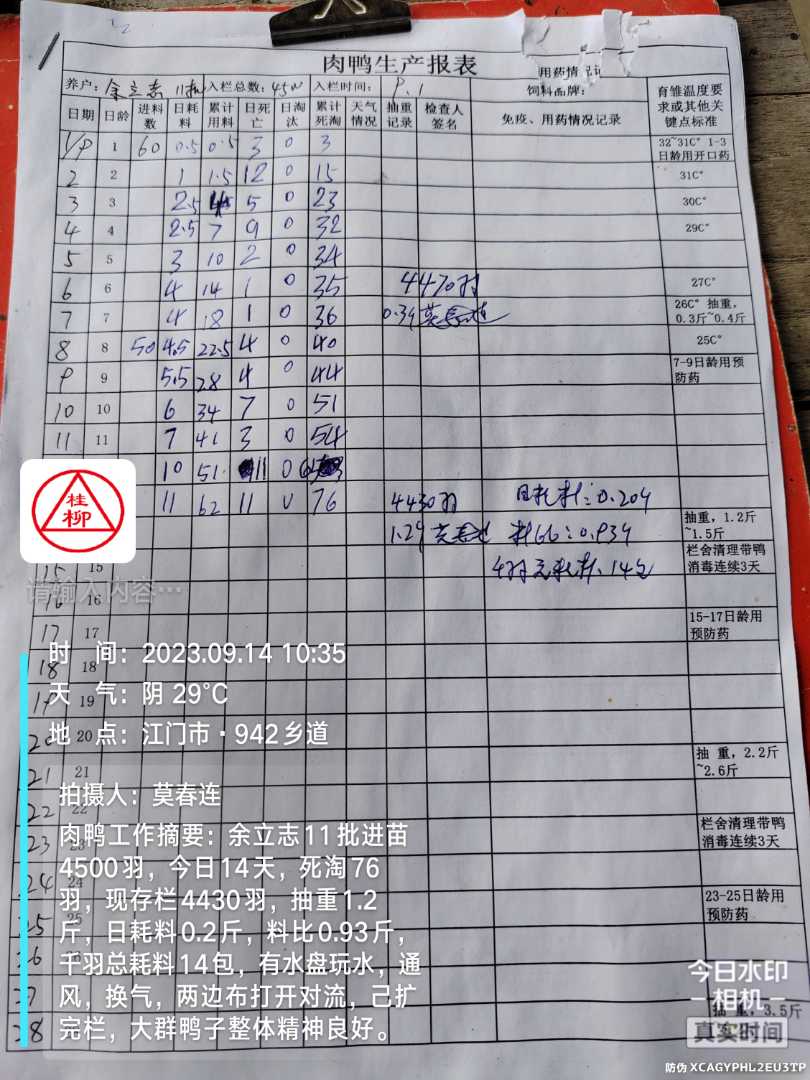 肉鸭生产报表
养户: 余立志 11批 入栏总数: 4500 入栏时间: 9.1 用药情
饲料品牌:
日期 日龄 进料数 日耗料 累计用料 日死亡 日淘汰 累计死淘 天气情况 抽重记录 检查人签名 免疫、用药情况记录 育雏温度要求或其他关键点标准
1/9 1 60 0.5 0.5 3 0 3 32~31C° 1-3日龄用开口药
2 2 1 1.5 12 0 15 31C°
3 3 2.5 5 0 23 30C°
4 4 2.5 7 9 0 32 29C°
5 5 3 10 2 0 34
6 6 4 14 1 0 35 4470羽 27C°
7 7 4 18 1 0 36 0.39 莫春连 26C° 抽重,0.3斤~0.4斤
8 8 50 4.5 22.5 4 0 40 25C°
9 9 5.5 28 4 0 44 7-9日龄用预防药
10 10 6 34 7 0 51
11 11 7 41 3 0 54
10 51 11 0
11 62 11 0 76 4430羽 日耗料:0.204
1.29 莫春连 料比:0.934 抽重,1.2斤~1.5斤
15 15 耗料:14包 栏舍清理带鸭消毒连续3天
请输入内容…
16 16
17 17 15-17日龄用预防药
18 18
19 19
20 20
21 21 抽重,2.2斤~2.6斤
22 22
23 23 栏舍清理带鸭消毒连续3天
24 24
25 25 23-25日龄用预防药
26
27
28 抽重,3.5斤
桂柳
时 间:2023.09.14 10:35
天 气:阴 29℃
地 点:江门市·942乡道
拍摄人:莫春连
肉鸭工作摘要:余立志11批进苗
4500羽,今日14天,死淘76
羽,现存栏4430羽,抽重1.2
斤,日耗料0.2斤,料比0.93斤,
千羽总耗料14包,有水盘玩水,通
风,换气,两边布打开对流,己扩
完栏,大群鸭子整体精神良好。
今日水印
相机
真实时间
防伪 XCAGYPHL2EU3TP